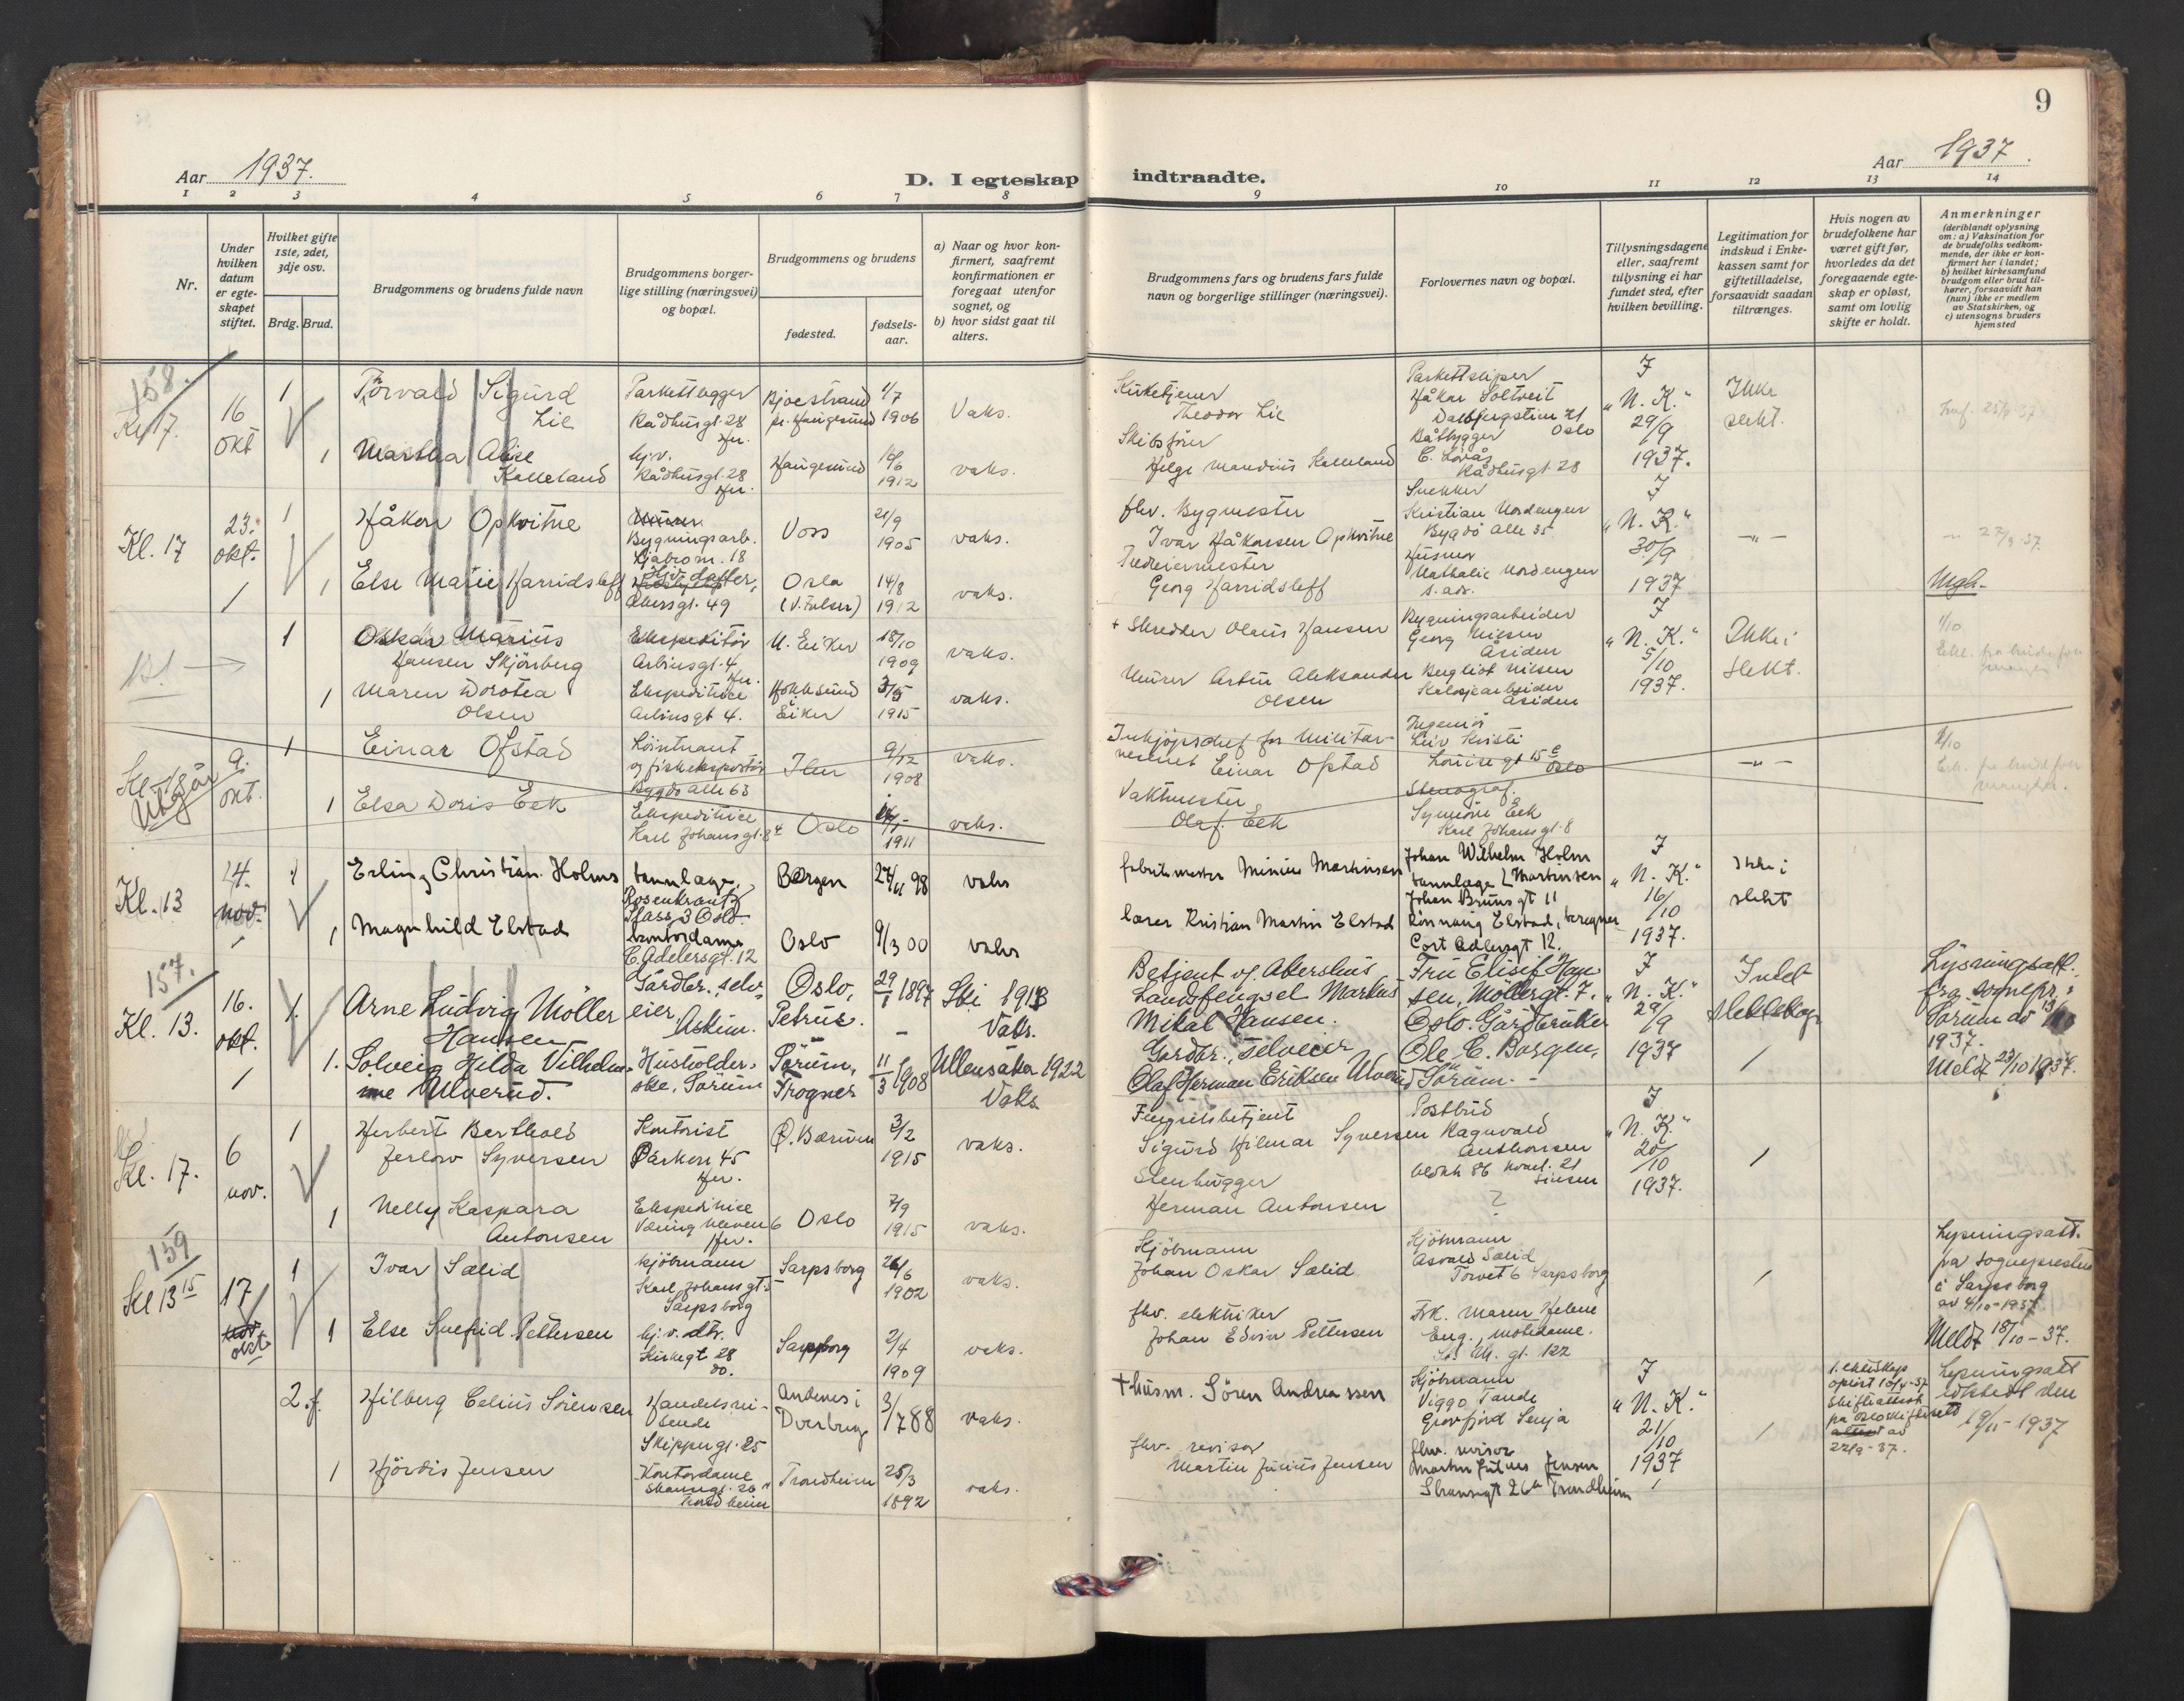 9
Aar 1937.
Aar 1937.
D. I egteskap indtraadte.
1 2 3 4 5 6 7 8 9 10 11 12 13 14
Nr.
Under hvilken datum er egteskapet stiftet.
Hvilket gifte 1ste, 2det, 3dje osv.
Brdg. Brud.
Brudgommens og brudens fulde navn
Brudgommens borgerlige stilling (næringsvei) og bopæl.
Brudgommens og brudens
fødested.
fødselsaar.
a) Naar og hvor konfirmert, saafremt konfirmationen er foregaat utenfor sognet, og
b) hvor sidst gaat til alters.
Brudgommens fars og brudens fars fulde navn og borgerlige stillinger (næringsvei).
Forlovernes navn og bopæl.
Tillysningsdagene eller, saafremt tillysning ei har fundet sted, efter hvilken bevilling.
Legitimation for indskud i Enkekassen samt for giftetilladelse, forsaavidt saadan tiltrænges.
Hvis nogen av brudefolkene har været gift før, hvorledes da det foregaaende egteskap er opløst, samt om lovlig skifte er holdt.
Anmerkninger
(deriblandt oplysning om: a) Vaksination for de brudefolks vedkommende, der ikke er konfirmert her i landet;
b) hvilket kirkesamfund brudgom eller brud tilhører, forsaavidt han (hun) ikke er medlem av Statskirken, og
c) utensogns bruders hjemsted
158.
Kl 17.
16 okt
1
Torvald Sigurd Lie
Parkettlegger
Rådhusgt. 28
Bjoestrand pr. Haugesund
1/7 1906
Vaks.
Kirketjener
Theodor Lie
Parkettsliper
Håkon Soltveit
Dalsbergstien 21 Oslo
I "N. K."
29/9 1937.
Ikke slekt.
1
Martha Alise Kalleland
hj.v.
Rådhusgt. 28
Haugesund
1912
vaks.
Skibsfører
Helge Maudius Kalleland
Båtbygger
C. Lovås
Rådhusgt. 28
Kl. 17
23. okt.
1
Håkon Opkvitne
Bygningsarb.
Ljabrom. 18
Voss
21/9 1905
vaks.
fhv. Bygmester
Ivar Håkonsen Opkvitne
Snekker
Kristian Nordengen
Bygdö Alle 35
I "N. K."
30/9 1937
— " —
27/9 37.
1
Else Marie Harridsleff
Akersgt. 49
Oslo
14/8 1912
vaks.
Georg Harridsleff
Husmor
Nathalie Nordengen
s. adr.
Utgh.
1
Oskar Marius
Hansen Skjönberg
Ekspeditör
Arbinsgt. 4
U. Eiker
18/10 1909
vaks.
+ Skredder Olaus Hansen
Bygningsarbeider
Georg Nilsen
Åsiden
I "N. K."
5/10 1937.
Ikke i slekt.
1/10
1
Maren Dorotea
Olsen
Ekspeditrice
Arbinsgt 4.
Hokksund
Eiker
1915
vaks.
Murer Artur Aleksander
Olsen
Bergliot Nilsen
Åsiden
Utgår
9. okt.
1
Einar Ofstad
Löitnant
og fiskeksportör
Bygdö alle 63
9/12 1908
vaks.
Innkjöpschef for Militær-
vesenet Einar Ofstad
Ingeniör
Leiv Kristi
Louisegt 15 Oslo
— " —
1
Elsa Doris Eek
Ekspeditrice
Karl Johansgt. 8
Oslo
1911
vaks.
Vaktmester
Olaf Eek
Stenograf
Synnöve Eek
Karl Johansgt. 8
Kl. 13
14. nov.
1
Erling Christian Holms
tannlæge
Rosenkrantz
Plass 3 Oslo
Bergen
27/11 98
vaks
fabrikmester Minius Martinsen
Johan Wilhelm Holm
tannlæge Martinsen
Johan Brunsgt 11
I "N. K."
16/10 1937.
Ikke i slekt
1
Magnhild Elstad
kontordame
C. Adelersgt. 12
Oslo
9/3 00
vaks
lærer Kristian Martin Elstad
Rönnaug Elstad, beregner
Cort Adlersgt 12.
157.
Kl. 13.
16. okt.
1.
Arne Ludvig Möller
Hansen
Gårdbr. selv-
eier, Askim.
Oslo,
Petrus.
29/1 1897
Ski 1913
Vaks.
Betjent v. Akershus
Landsfengsel Markus
Mikal Hansen.
Fru Elisif Han-
sen, Möllergt. 7.
Oslo. Gårdbruker
I "N. K."
29/9 1937
Intet slektskap
Lysningsatt.
fra sognepr. i
Sörum av 13/10
1937.
Meldt 23/10 1937.
1.
Solveig Hilda Vilhelm-
ine Ulverud.
Husholder-
ske, Sörum
Sörum,
Frogner
11/3 1908
Ullensaker 1922
Vaks.
Gårdbr., selveier
Olaf Herman Eriksen Ulverud
Ole C. Borgen,
Sörum.
Kl. 17.
6 nov.
1
Herbert Berthold
Jerlow Syversen
Kontorist
Parkvn 45
Ö. Bærum
3/2 1915
vaks.
Fengselsbetjent
Sigurd Hilmar Syversen
Postbud
Ragnvald
Anthonsen
Blokk 86 Kvart. 21
Sinsen
I "N. K."
20/10 1937.
1
Nelly Kaspara
Antonsen
Ekspeditrice
Oslo
7/9 1915
vaks.
Stenhugger
Herman Antonsen
?
159
Kl 13 15
17 okt
1
Ivar Sælid
Kjöbmann
Karl Johansgt
Sarpsborg
Sarpsborg
26/6 1902
vaks.
Kjöbmann
Johan Oskar Sælid
Kjöbmann
Asvald Sælid
Torvet 6 Sarpsborg
Lysningsatt.
fra sognepresten
i Sarpsborg
av 4/10 - 1937.
Meldt 18/10 - 37.
1
Else Snefrid Pettersen
hj. v. dtr.
Kirkegt 28
do.
Sarpsborg
2/4 1909
vaks.
fhv. elektriker
Johan Edvin Pettersen
Frk. Maren Helene
Eng, motedame.
St. M. gt. 122
2. f.
Hilberg Celius Sörensen
Handelsrei-
sende
Skippergt. 25
Andenes i
Dverberg
3/7 88
vaks.
+ husm. Sören Andreassen
Kjöbmann
Viggo Tande
Grovfjord Senja
I "N. K."
21/10 1937
1. ekteskap
oplöst
skifteattest
fra Oslo skifterett
av
22/9 - 37.
Lysningsatt
utstedt den
19/11 - 1937
1
Hjördis Jensen
Kontordame
Trondheim
Trondheim
25/3 1892
vaks.
fhv. revisor
Martin Julius Jensen
fhv. revisor
Martin Julius Jensen
Strandgt 26 Trondheim